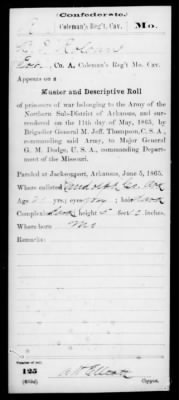 Confederate.
C Coleman's Reg't, Cav. Mo.
Co. A, Coleman's Reg't Mo. Cav.
Appears on a
Muster and Descriptive Roll
of prisoners of war belonging to the Army of the
Northern Sub-District of Arkansas, and sur-
rendered on the 11th day of May, 1865, by
Brigadier General M. Jeff. Thompson, C. S. A.,
commanding said Army, to Major General
G. M. Dodge, U. S. A., commanding Depart-
ment of the Missouri.
Paroled at Jacksonport, Arkansas, June 5, 1865.
Where enlisted Randolph Co. Ark
Age yrs; eyes ; hair dark
Complex dark height 5 feet inches.
Where born Mo
Remarks:
Number of roll:
125
Copyist.